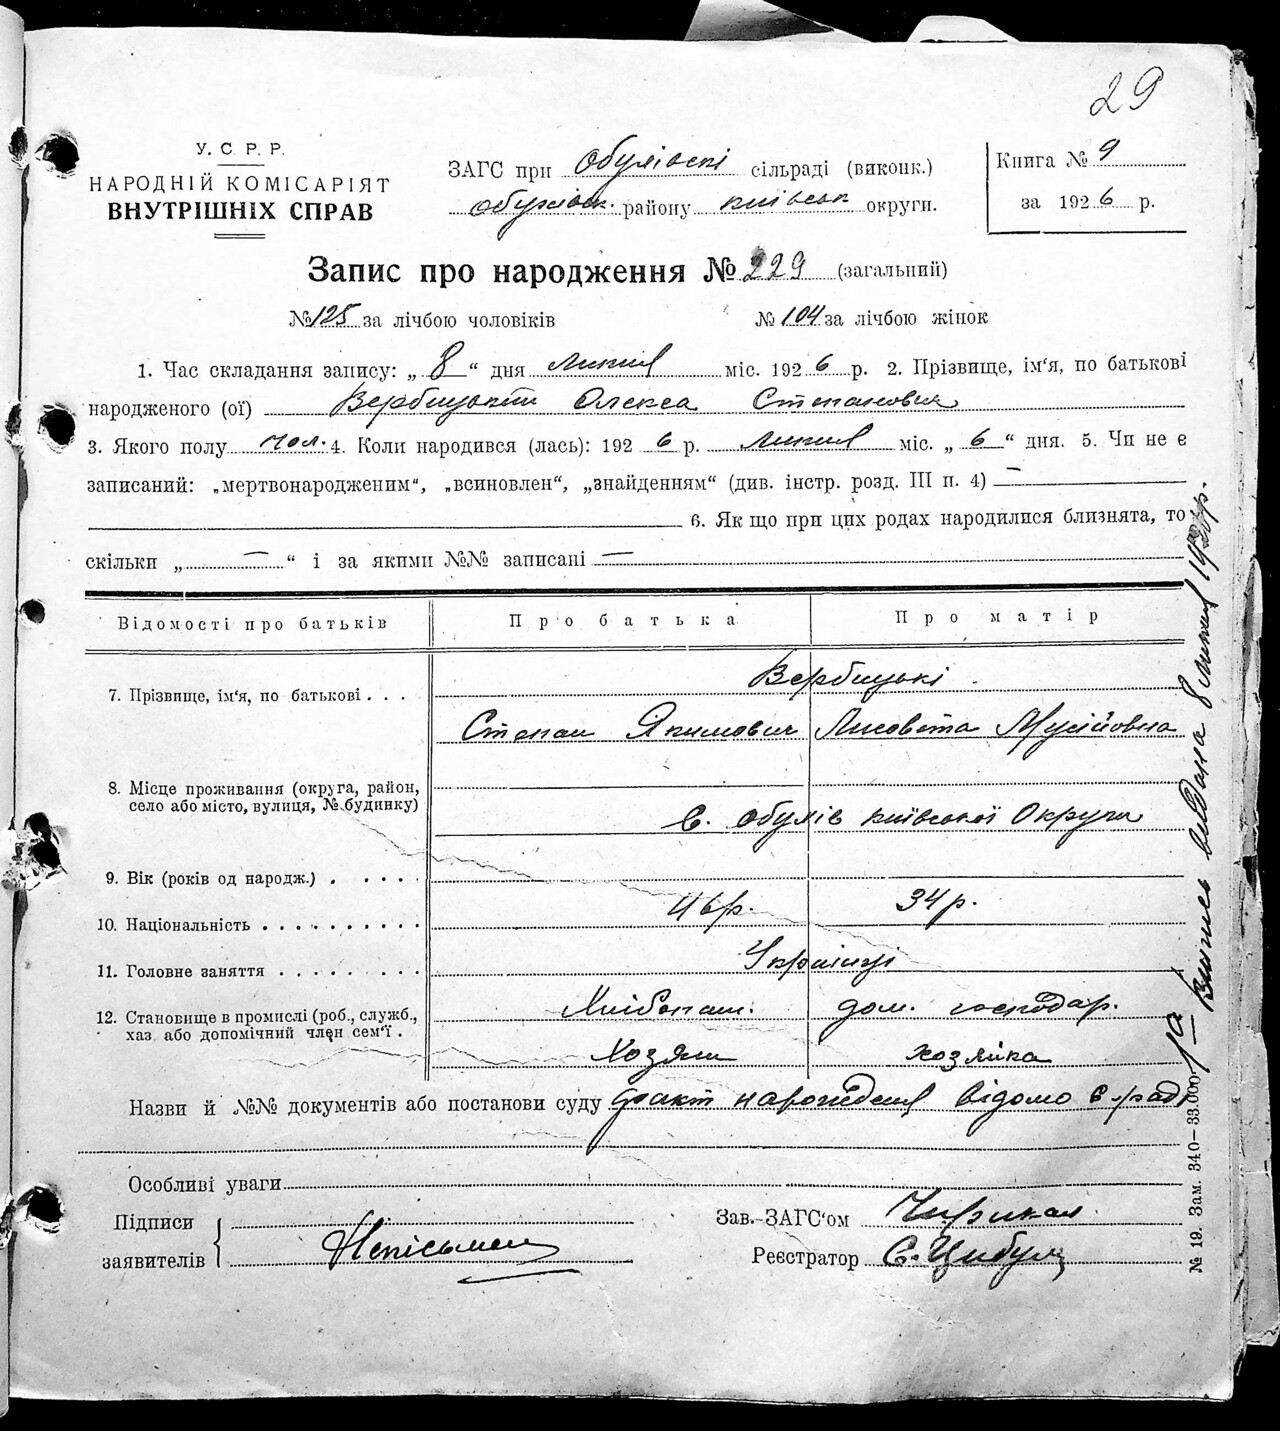 29
У. С. Р. Р.
НАРОДНІЙ КОМІСАРІЯТ
ВНУТРІШНІХ СПРАВ
ЗАГС при Обухівскі сільраді (виконк.)
Обухівськ. району Київськ округи.
Книга № 9
за 1926 р.
Запис про народження № 229 (загальний)
№ 125 за лічбою чоловіків № 104 за лічбою жінок
1. Час складання запису: „ 8 “ дня липня міс. 1926 р. 2. Прізвище, ім‘я, по батькові
народженого (ої) Вербицький Олекса Степанович
3. Якого полу чол. 4. Коли народився (лась): 1926 р. липня міс. „ 6 “ дня. 5. Чи не є
записаний: „мертвонародженим“, „всиновлен“, „знайденням“ (див. інстр. розд. III п. 4) —
6. Як що при цих родах народилися близнята, то
скільки „ — “ і за якими №№ записані —
Відомості про батьків Про батька Про матір
7. Прізвище, ім‘я, по батькові . . . Вербицькі
Степан Якимович Лисовета Мусійовна
8. Місце проживання (округа, район,
село або місто, вулиця, № будинку)
с. Обухів Київської Округи
9. Вік (років од народж.) . . . . .
46р. 34р.
10. Національність . . . . . . . . . .
Українці
11. Головне заняття . . . . . . . .
Хлібопаш. дом. господар.
12. Становище в промислі (роб., служб.,
хаз або допомічний член сем‘ї .
Хозяин хозяйка
Назви й №№ документів або постанови суду факт народження відомо с/раді
Особливі уваги
Підписи
заявителів
Неписьмен
Зав.-ЗАГС‘ом
Реєстратор Є. Цибуля
Выпись видана 8 липня 1926р.
№ 19. Зам. 340—33.000